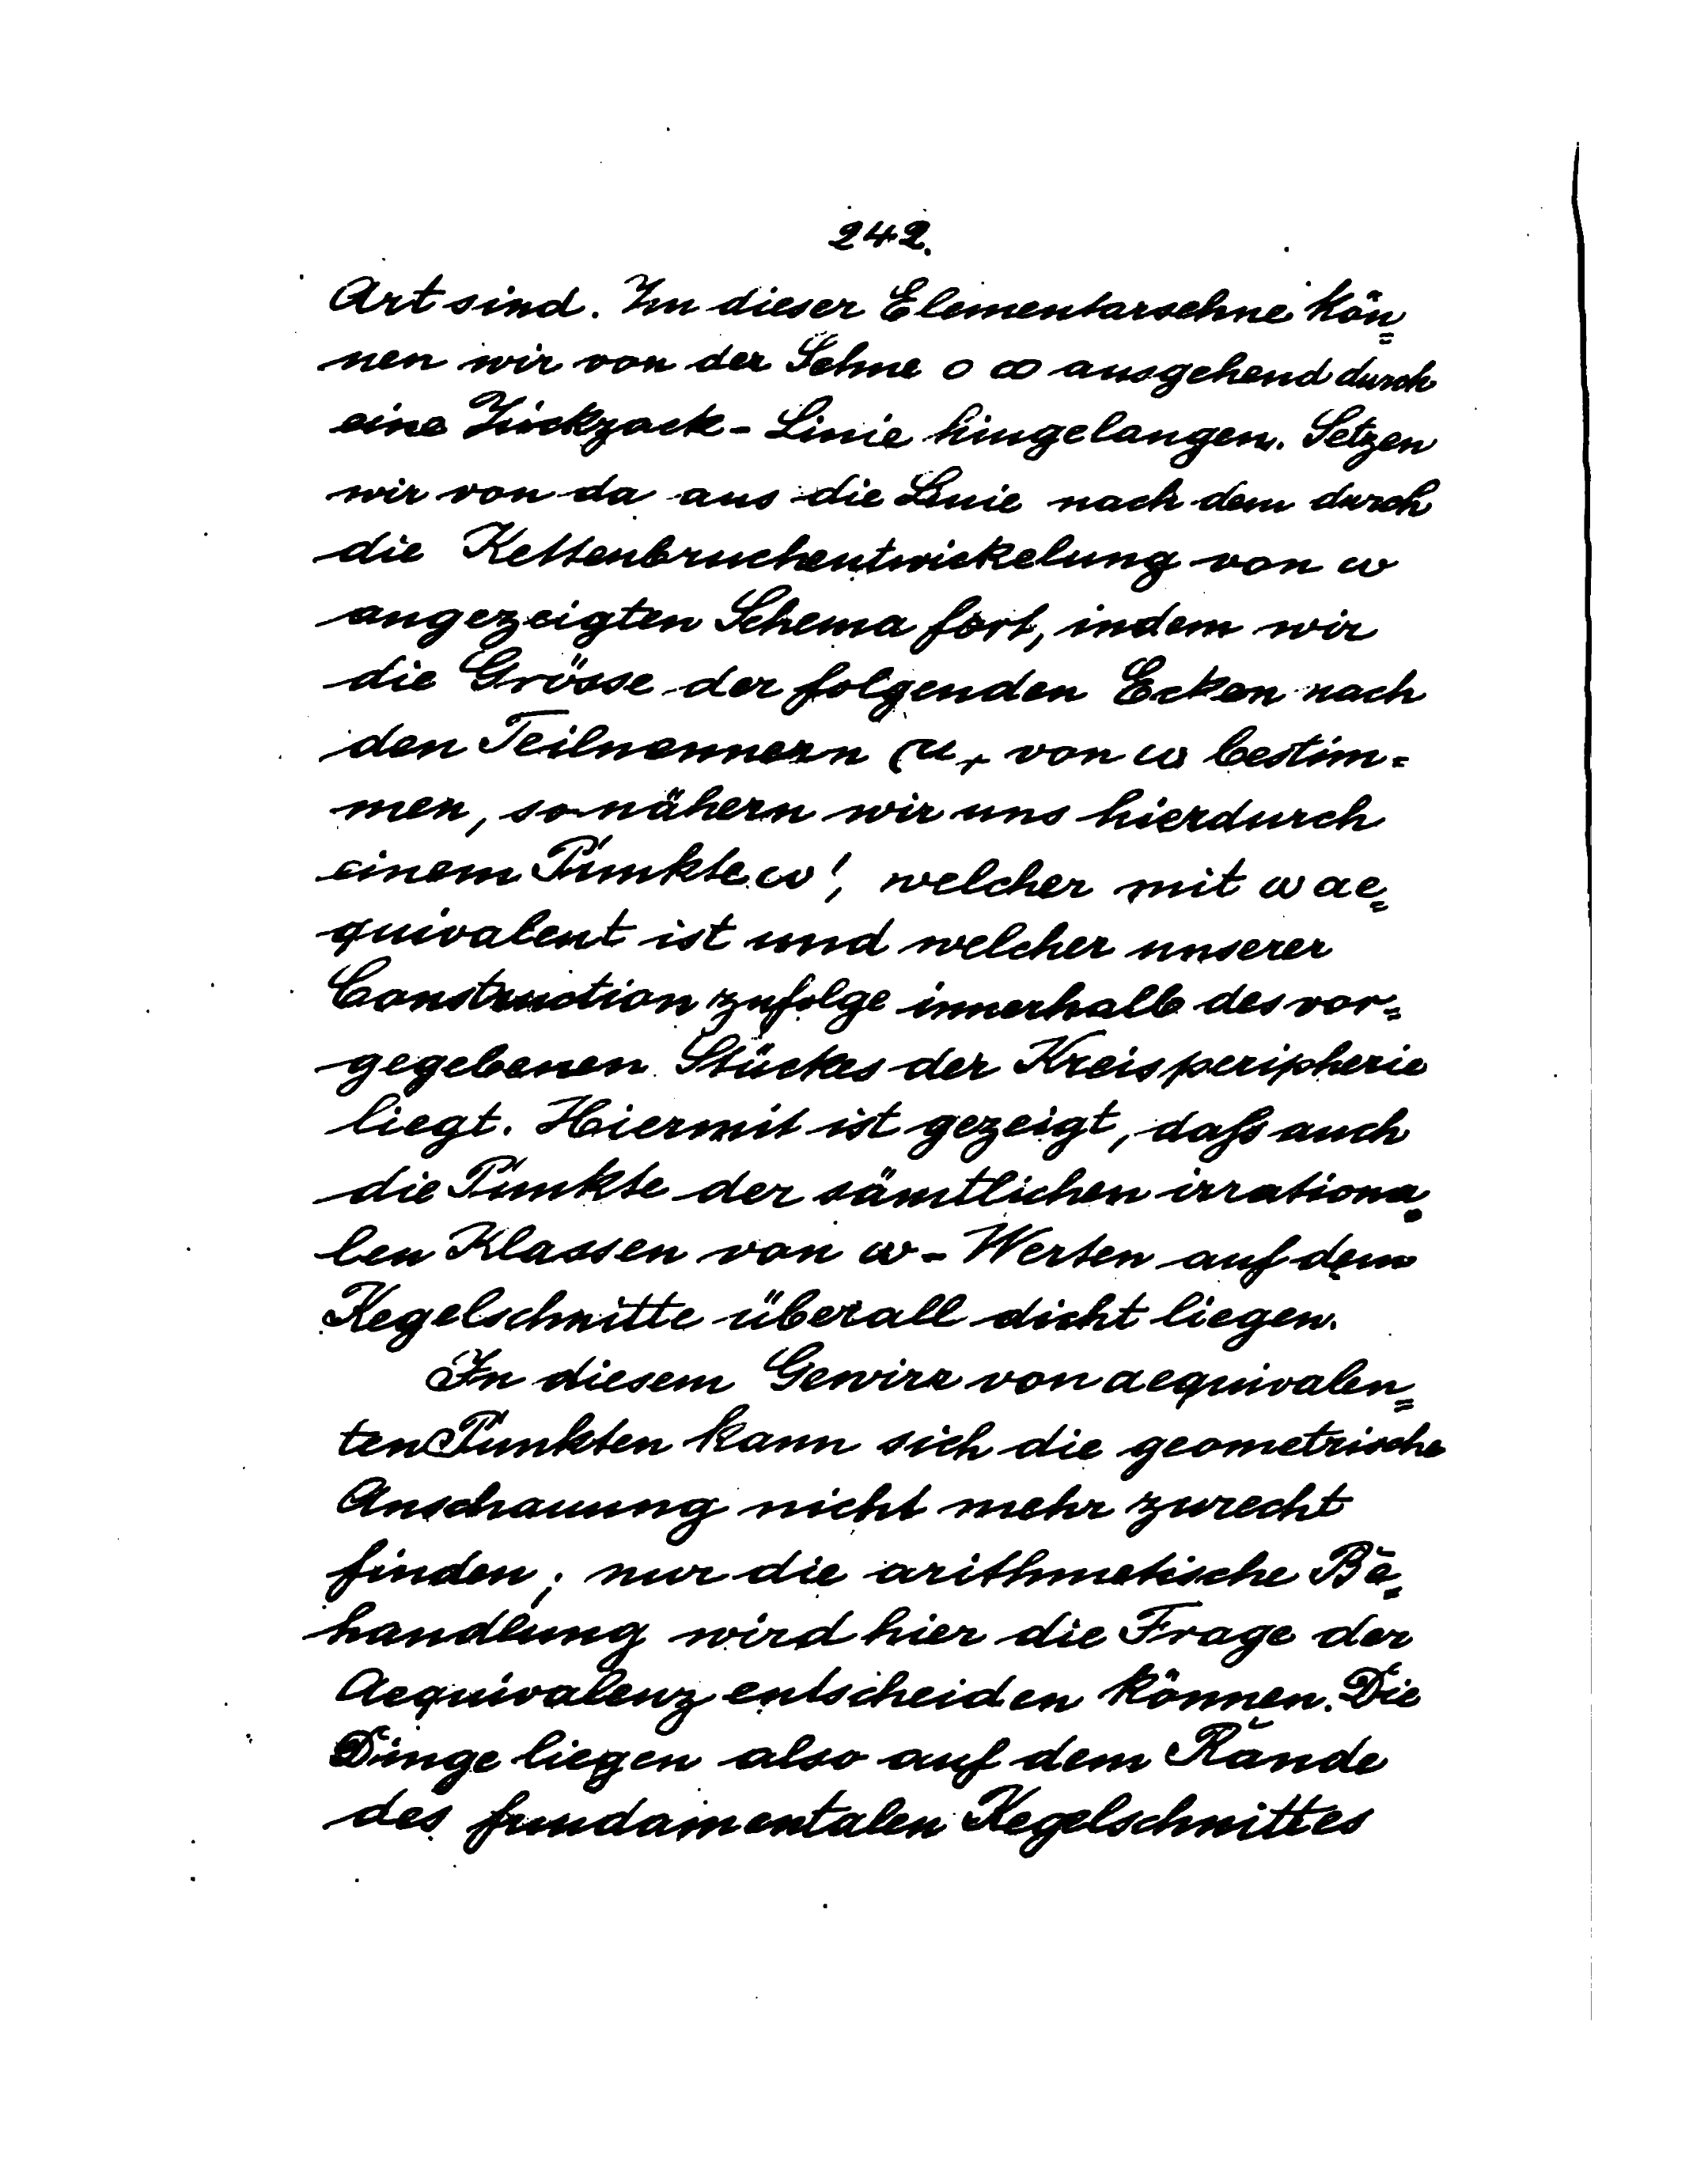 242.
Art sind. Zu dieser Elementarsehne kön=
nen wir von der Sehne o ∞ ausgehend durch
eine Zickzack-Linie hingelangen. Setzen
wir von da aus die Linie nach dem durch
die Kettenbruchentwickelung von ω
angezeigten Schema fort, indem wir
die Grösse der folgenden Ecken nach
den Teilnennern μᵣ von ω bestim=
men, so nähern wir uns hierdurch
einem Punkte ω', welcher mit ω ae=
quivalent ist und welcher unserer
Construction zufolge innerhalb des vor=
gegebenen Stückes der Kreisperipherie
liegt. Hiermit ist gezeigt, daß auch
die Punkte der sämtlichen irrationa=
len Klassen von ω-Werten auf dem
Kegelschnitte überall dicht liegen.
In diesem Gewirr von aequivalen=
ten Punkten kann sich die geometrische
Anschauung nicht mehr zurecht
finden; nur die arithmetische Be=
handlung wird hier die Frage der
Aequivalenz entscheiden können. Die
Dinge liegen also auf dem Rande
des fundamentalen Kegelschnittes